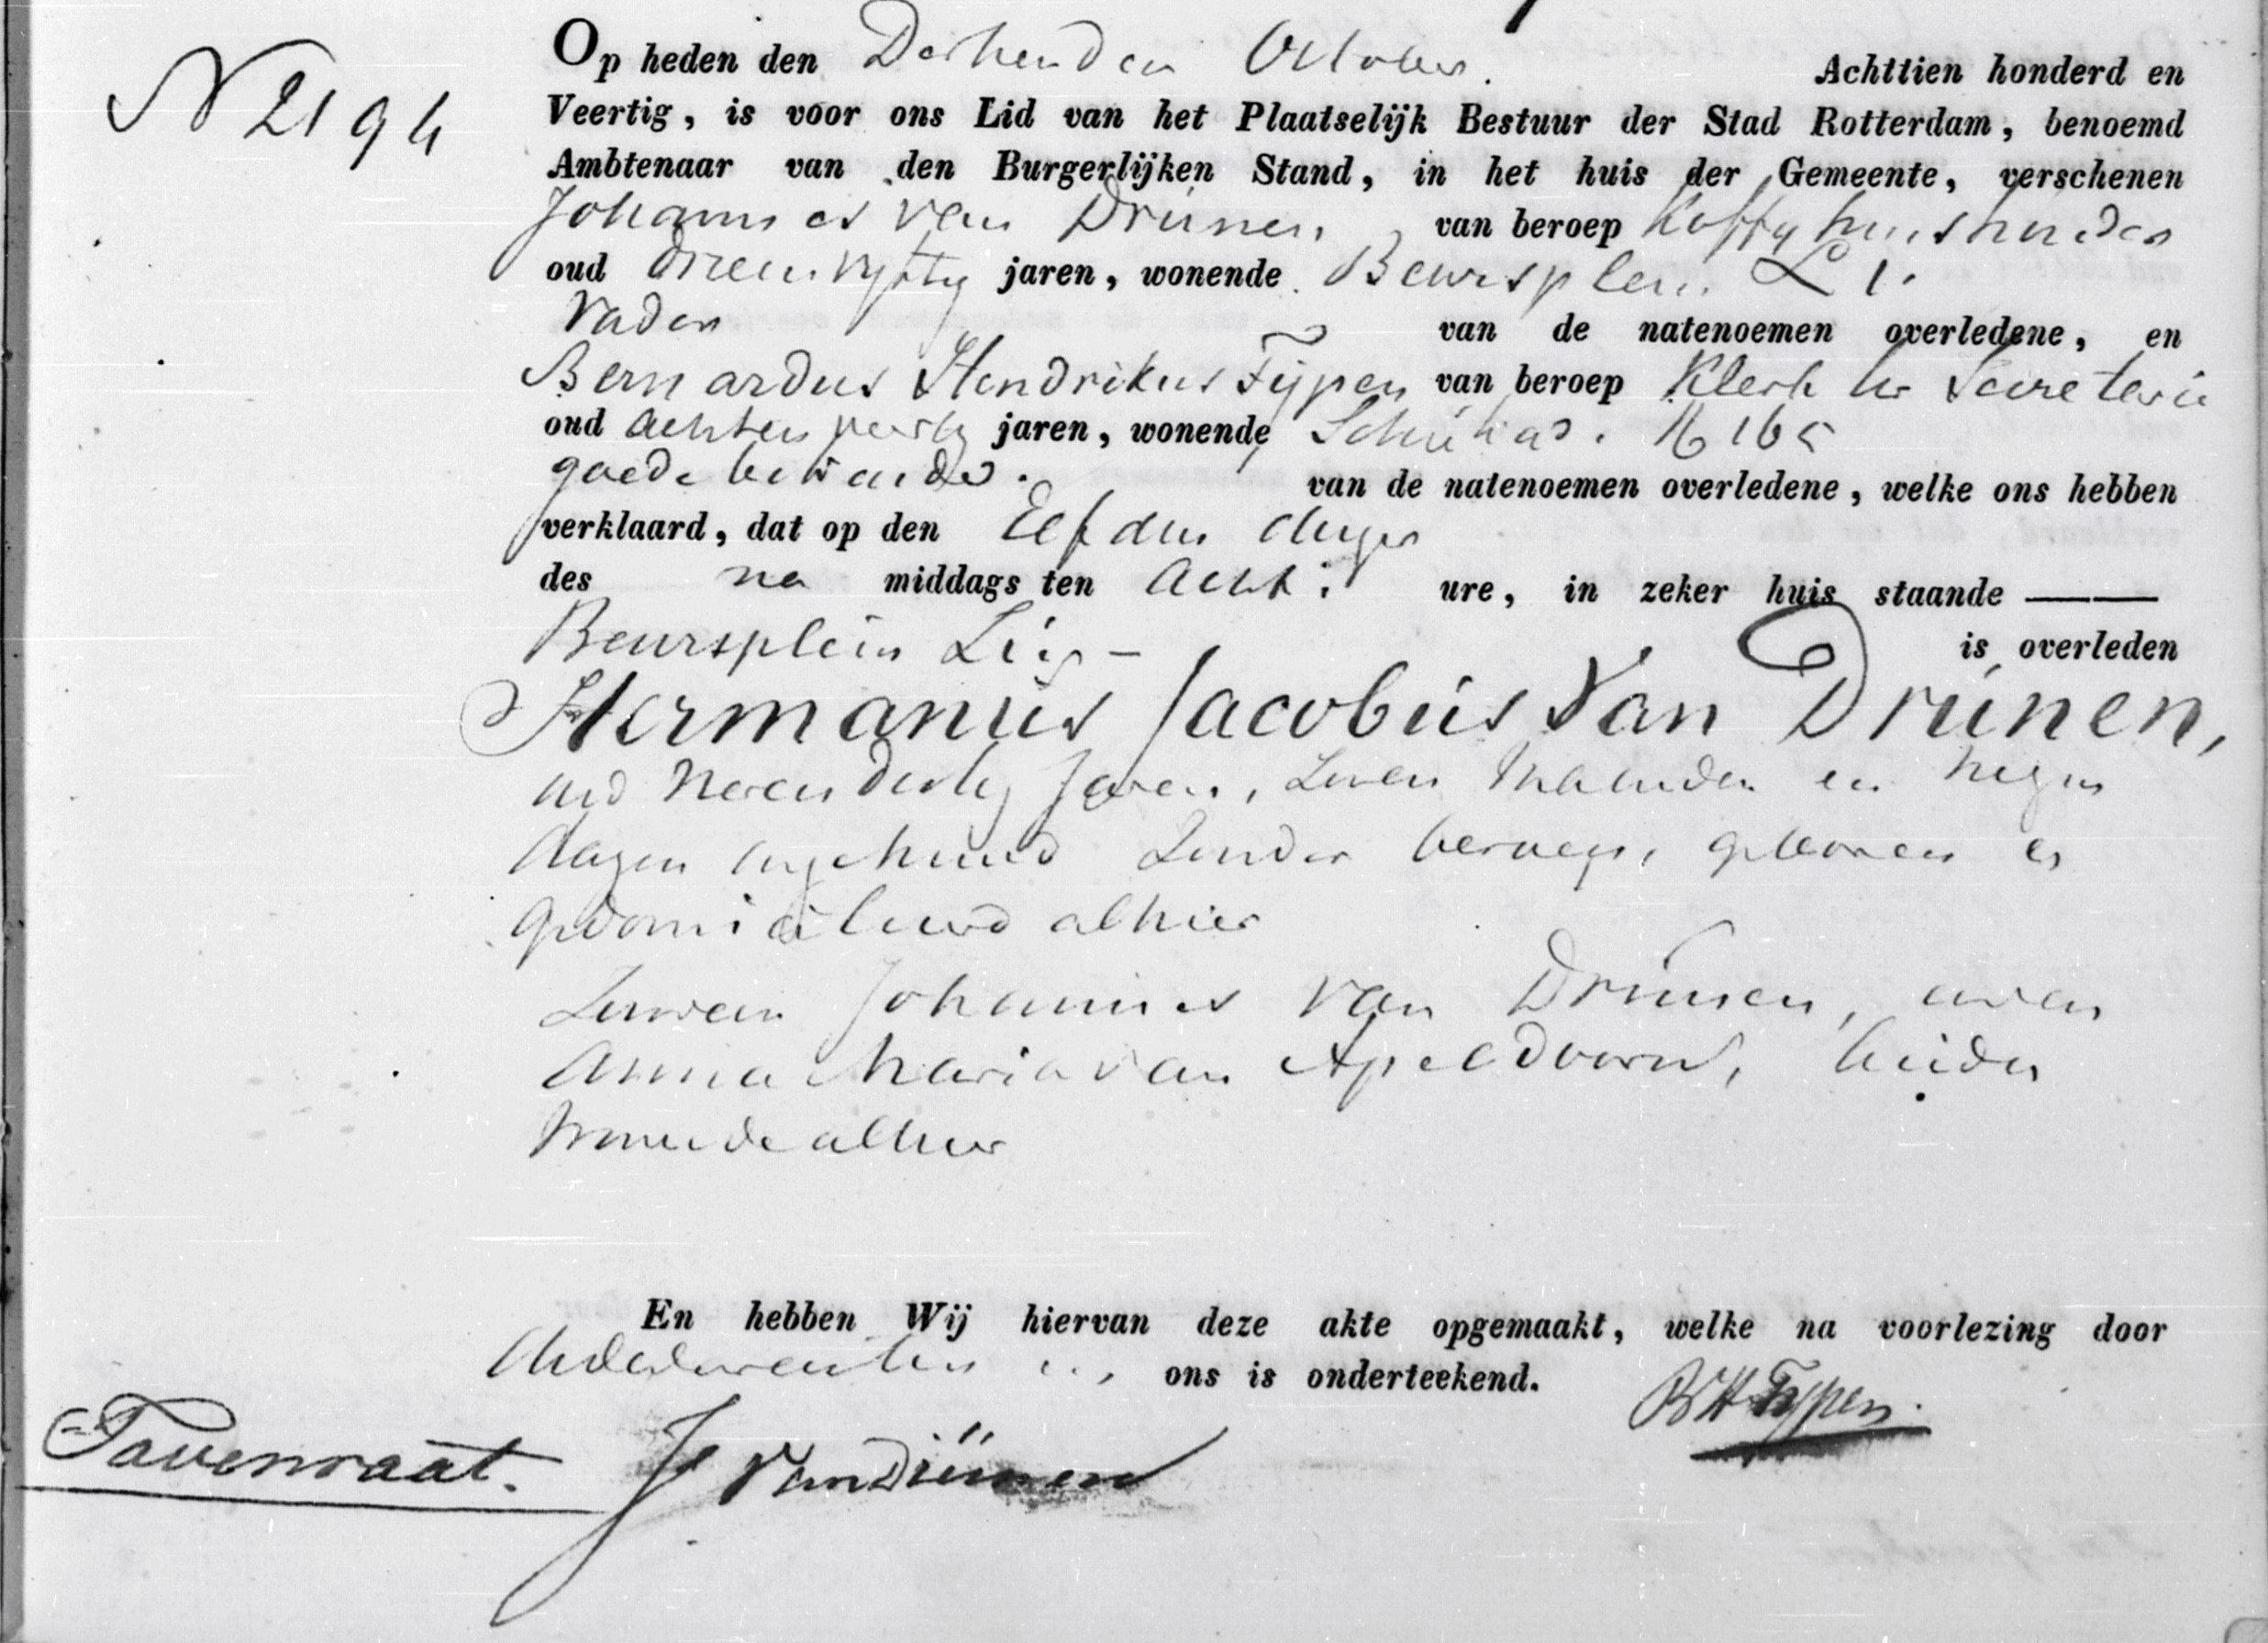 N 2194
Op heden den Dertienden October. Achttien honderd en
Veertig, is voor ons Lid van het Plaatselijk Bestuur der Stad Rotterdam, benoemd
Ambtenaar van den Burgerlijken Stand, in het huis der Gemeente, verschenen
Johannes van Drunen van beroep Koffyhuishouder
oud drieenvyftig jaren, wonende Beursplein L 1.
Vader van de natenoemen overledene, en
Bernardus Hendrikus Fijpen van beroep Klerk ter Secretarie
oud achten jaren, wonende 165
goede bekende. van de natenoemen overledene, welke ons hebben
verklaard, dat op den Elfden dezer
des na middags ten acht. ure, in zeker huis staande
Beursplein is overleden
Hermanus Jacobus Van Drúnen,
oud jaren, zeven maanden en negen
dagen ongehuwd zonder beroep, geboren en
gedomicilieerd alhier
Zoon van Johannes van Drunen, en van
Anna Maria van Apeldoorn, beiden
wonende alhier
En hebben Wij hiervan deze akte opgemaakt, welke na voorlezing door
de declaranten en ons is onderteekend.
BH Fypen.
Tavenraat. J Van Drünen